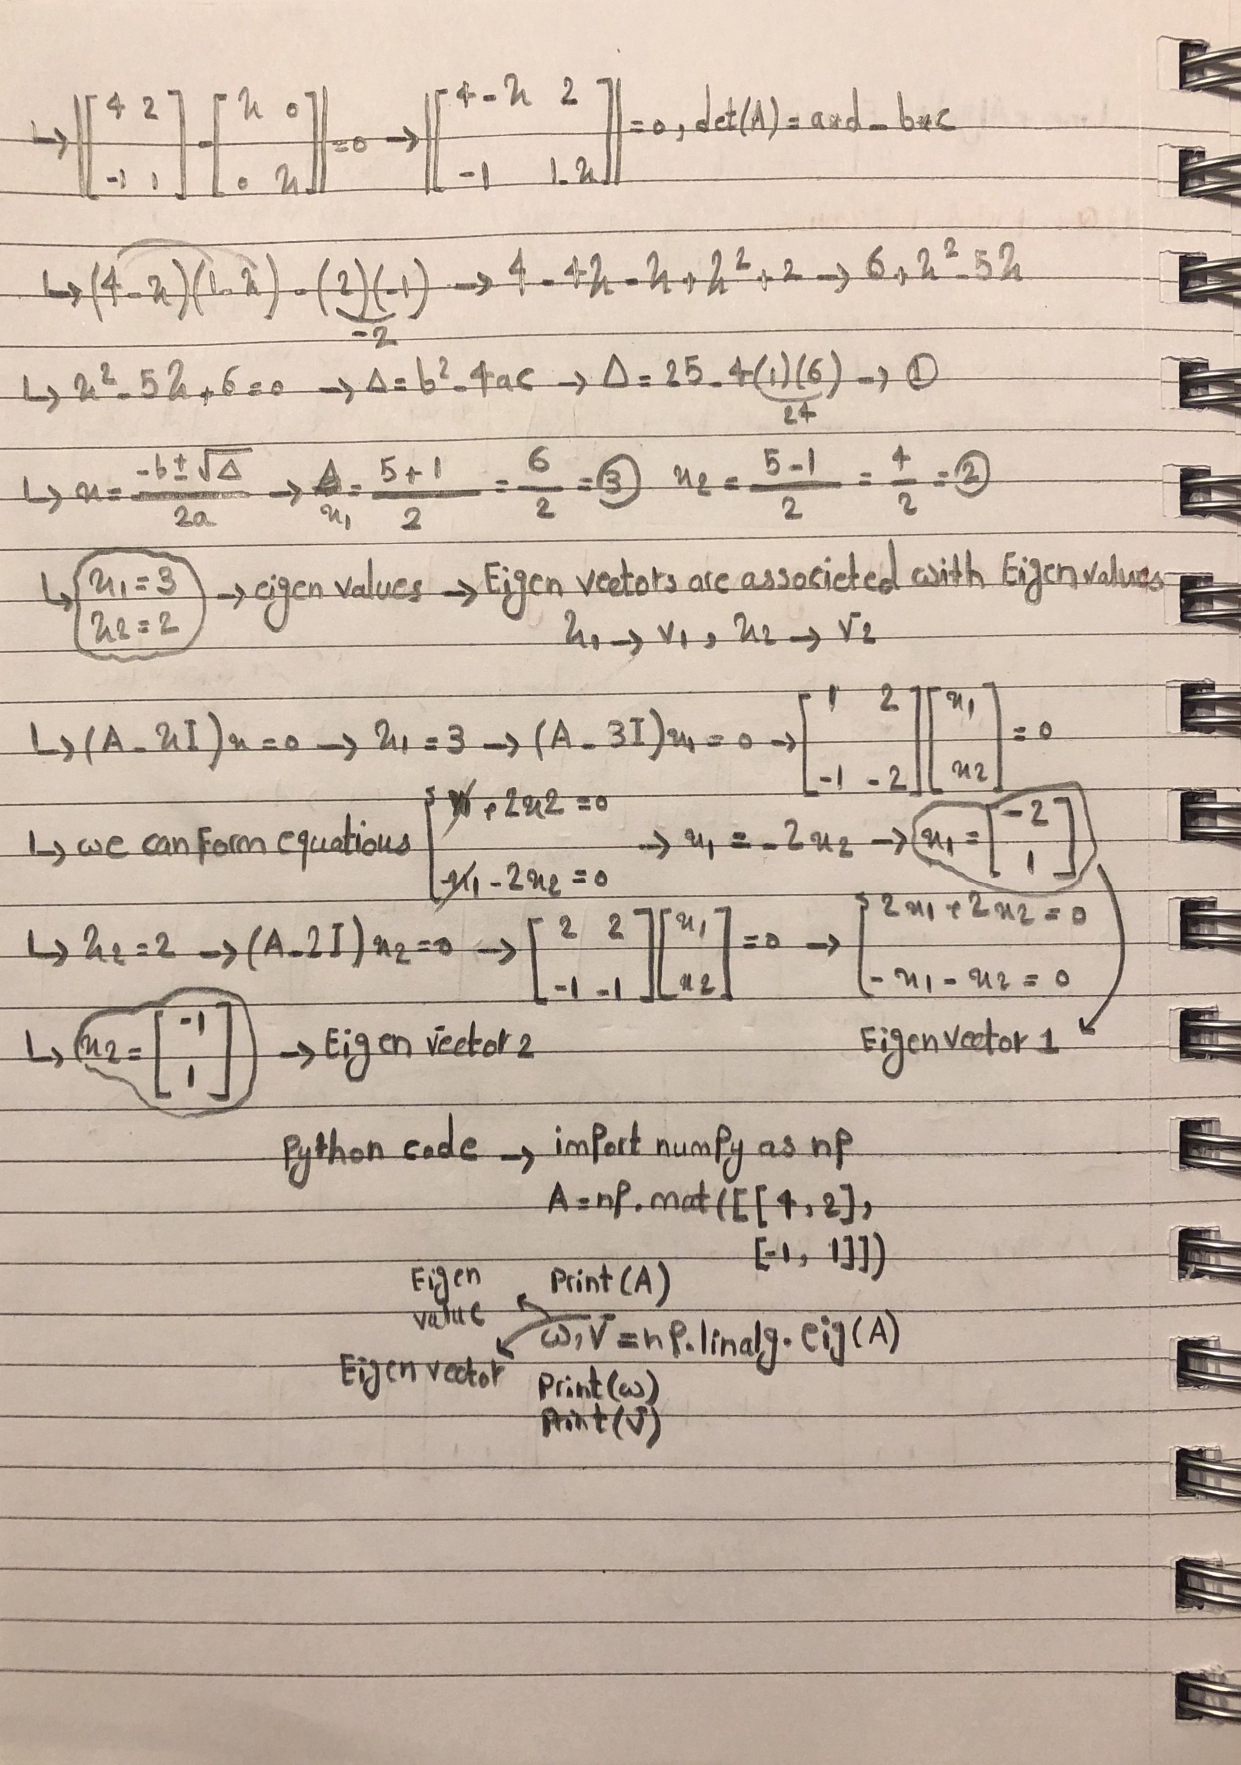 ↳ |[4 2; -1 1] - [λ 0; 0 λ]| = 0 → |[4-λ 2; -1 1-λ]| = 0, det(A) = a*d - b*c
↳ (4-λ)(1-λ) - (2)(-1) → 4 - 4λ - λ + λ² + 2 → 6 + λ² - 5λ
-2
↳ λ² - 5λ + 6 = 0 → Δ = b² - 4ac → Δ = 25 - 4(1)(6) → ①
24
↳ x = (-b ± √Δ)/2a → x₁ = (5+1)/2 = 6/2 = ③ x₂ = (5-1)/2 = 4/2 = ②
↳ {λ₁ = 3 λ₂ = 2 → eigen values → Eigen vectors are associeted with Eigen values
λ₁ → v₁, λ₂ → v₂
↳ (A - λI)x = 0 → λ₁ = 3 → (A - 3I)x₁ = 0 → [1 2; -1 -2] [x₁; x₂] = 0
↳ we can form equations {x₁ + 2x2 = 0; -x₁ - 2x₂ = 0 → x₁ = -2x₂ → x₁ = [-2; 1]
↳ λ₂ = 2 → (A - 2I)x₂ = 0 → [2 2; -1 -1] [x₁; x₂] = 0 → {2x₁ + 2x₂ = 0; -x₁ - x₂ = 0
↳ x₂ = [-1; 1] → Eigen vector 2 Eigen vector 1
Python code → import numpy as np
A = np.mat([[4, 2],
[-1, 1]])
Eigen value print(A)
w, v = np.linalg.eig(A)
Eigen vector print(w)
print(v)